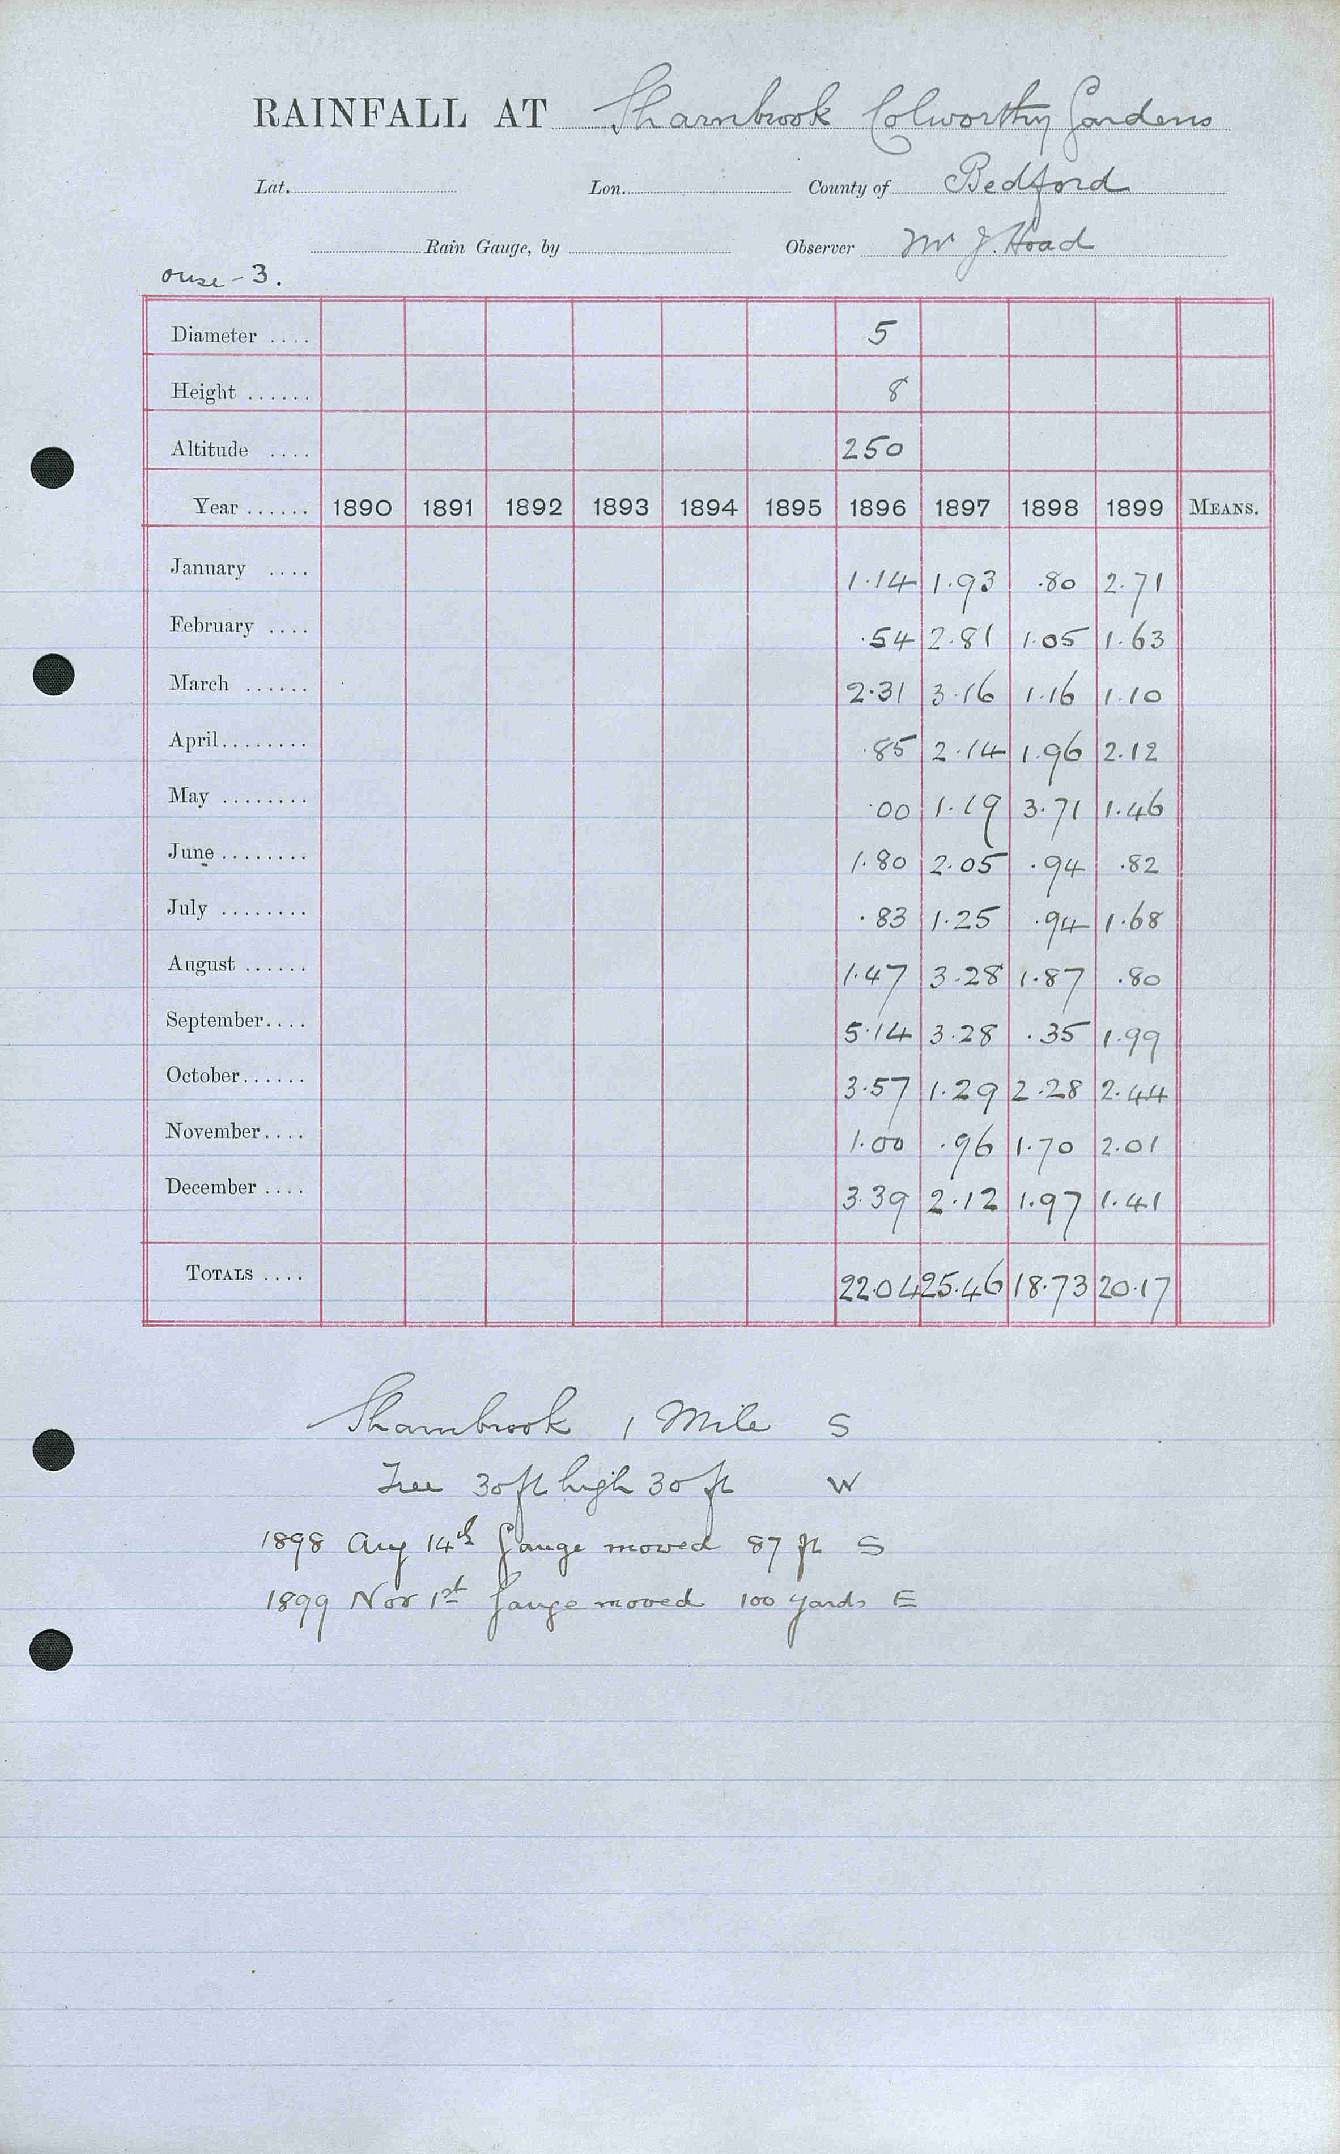 RAINFALL AT Sharnbrook Colworthy Gardens
Lat. Lon. County of Bedford
Rain Gauge, by Observer Mr J. Hoad
Ouse - 3.
Diameter .... 5
Height ...... 8
Altitude .... 250
Year ...... 1890 1891 1892 1893 1894 1895 1896 1897 1898 1899 MEANS.
January .... 1.14 1.93 .80 2.71
February .... .54 2.81 1.05 1.63
March ...... 2.31 3.16 1.16 1.10
April........ .85 2.14 1.96 2.12
May ........ .00 1.19 3.71 1.46
June ........ 1.80 2.05 .94 .82
July ........ .83 1.25 .94 1.68
August ...... 1.47 3.28 1.87 .80
September.... 5.14 3.28 .35 1.99
October...... 3.57 1.29 2.28 2.44
November.... 1.00 .96 1.70 2.01
December .... 3.39 2.12 1.97 1.41
TOTALS .... 22.04 25.46 18.73 20.17
Sharnbrook 1 Mile S
Tree 30 ft high 30 ft W
1898 Aug 14th Gauge moved 87 ft S
1899 Nov 1st Gauge moved 100 yards E